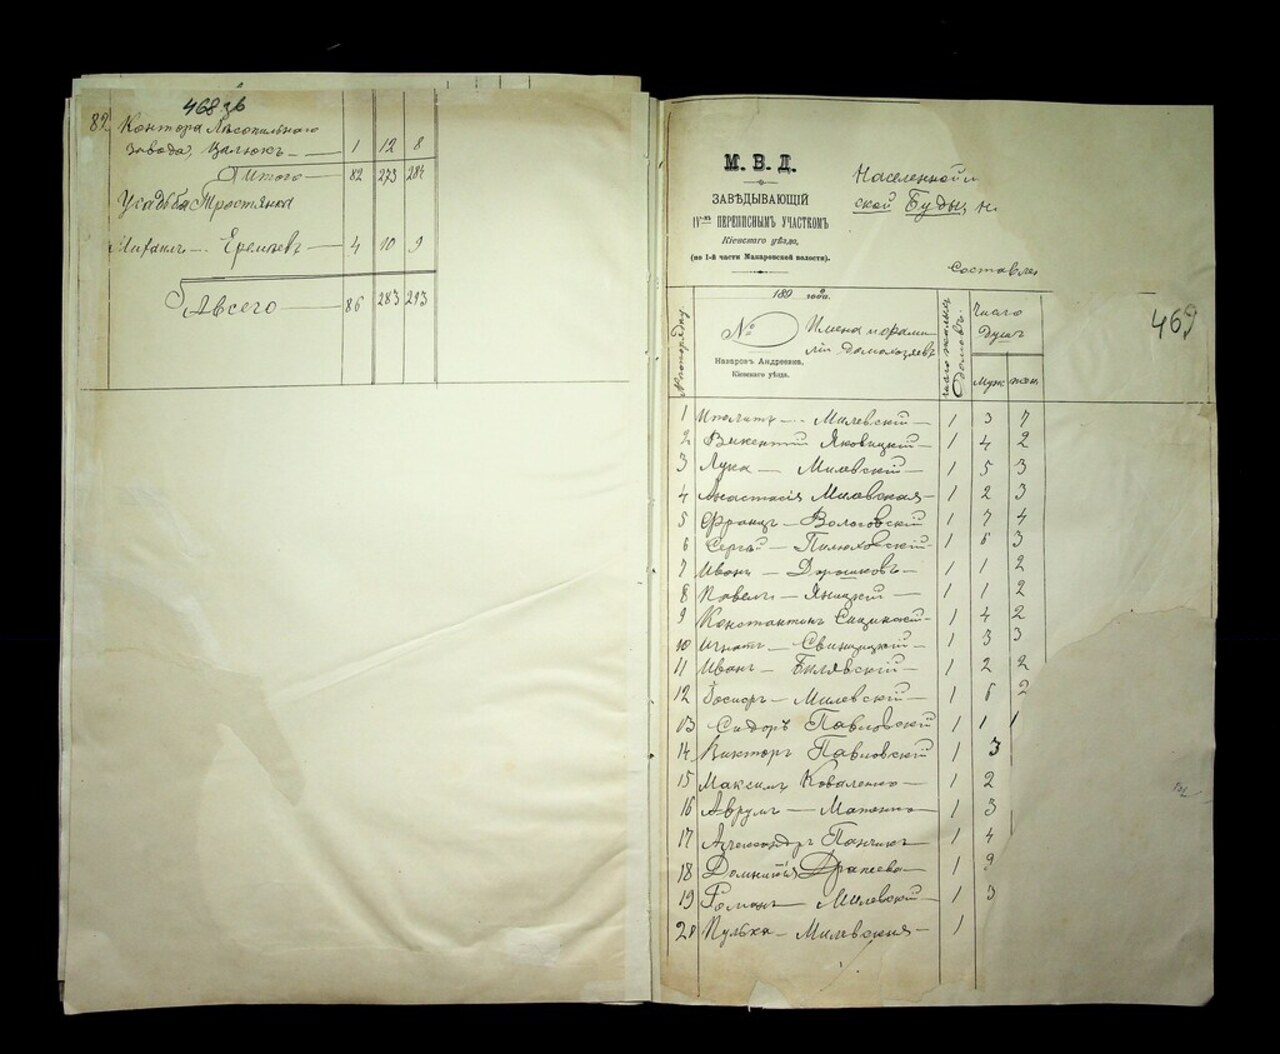 468 зв
82 Контора Лѣсопильнаго
завода, Цалюкъ 1 12 8
Итого 82 273 284
Усадьба Тростянка
Михаилъ Еремѣевъ 4 10 9
А всего 86 283 293
М. В. Д.
ЗАВѢДЫВАЮЩІЙ
IV-мъ ПЕРЕПИСНЫМЪ УЧАСТКОМЪ
Кіевскаго уѣзда,
(по 1-й части Макаровской волости).
189 года.
№
Назаровъ Андреевка,
Кіевскаго уѣзда.
Населенной
ской Буды, н.
Составле
469
№ по порядку
Имена и фами
ліи домохозяевъ
Число жилыхъ домовъ.
Число
душъ
Муж жен
1 Иполитъ Милевскій 1 3 7
2 Викентій Яковицкій 1 4 2
3 Лука Милевскій 1 5 3
4 Анастасія Милевская 1 2 3
5 Францъ Вологовскій 1 7 4
6 Сергей Пилюховскій 1 6 3
7 Иванъ Дорошковъ 1 1 2
8 Павелъ Яницкій 1 1 2
9 Константинъ 1 4 2
10 Игнатъ Свинцицкій 1 3 3
11 Иванъ Билявскій 1 2 2
12 Милевскій 1 6 2
13 Сидоръ Павловскій 1 1 1
14 Викторъ Павловскій 1 3
15 Максимъ Коваленко 1 2
16 Аврумъ 1 3
17 Александръ Панчукъ 1 4
18 Домникія Драпеева 1 9
19 Романъ Милевскій 1 3
20 Милевская 1